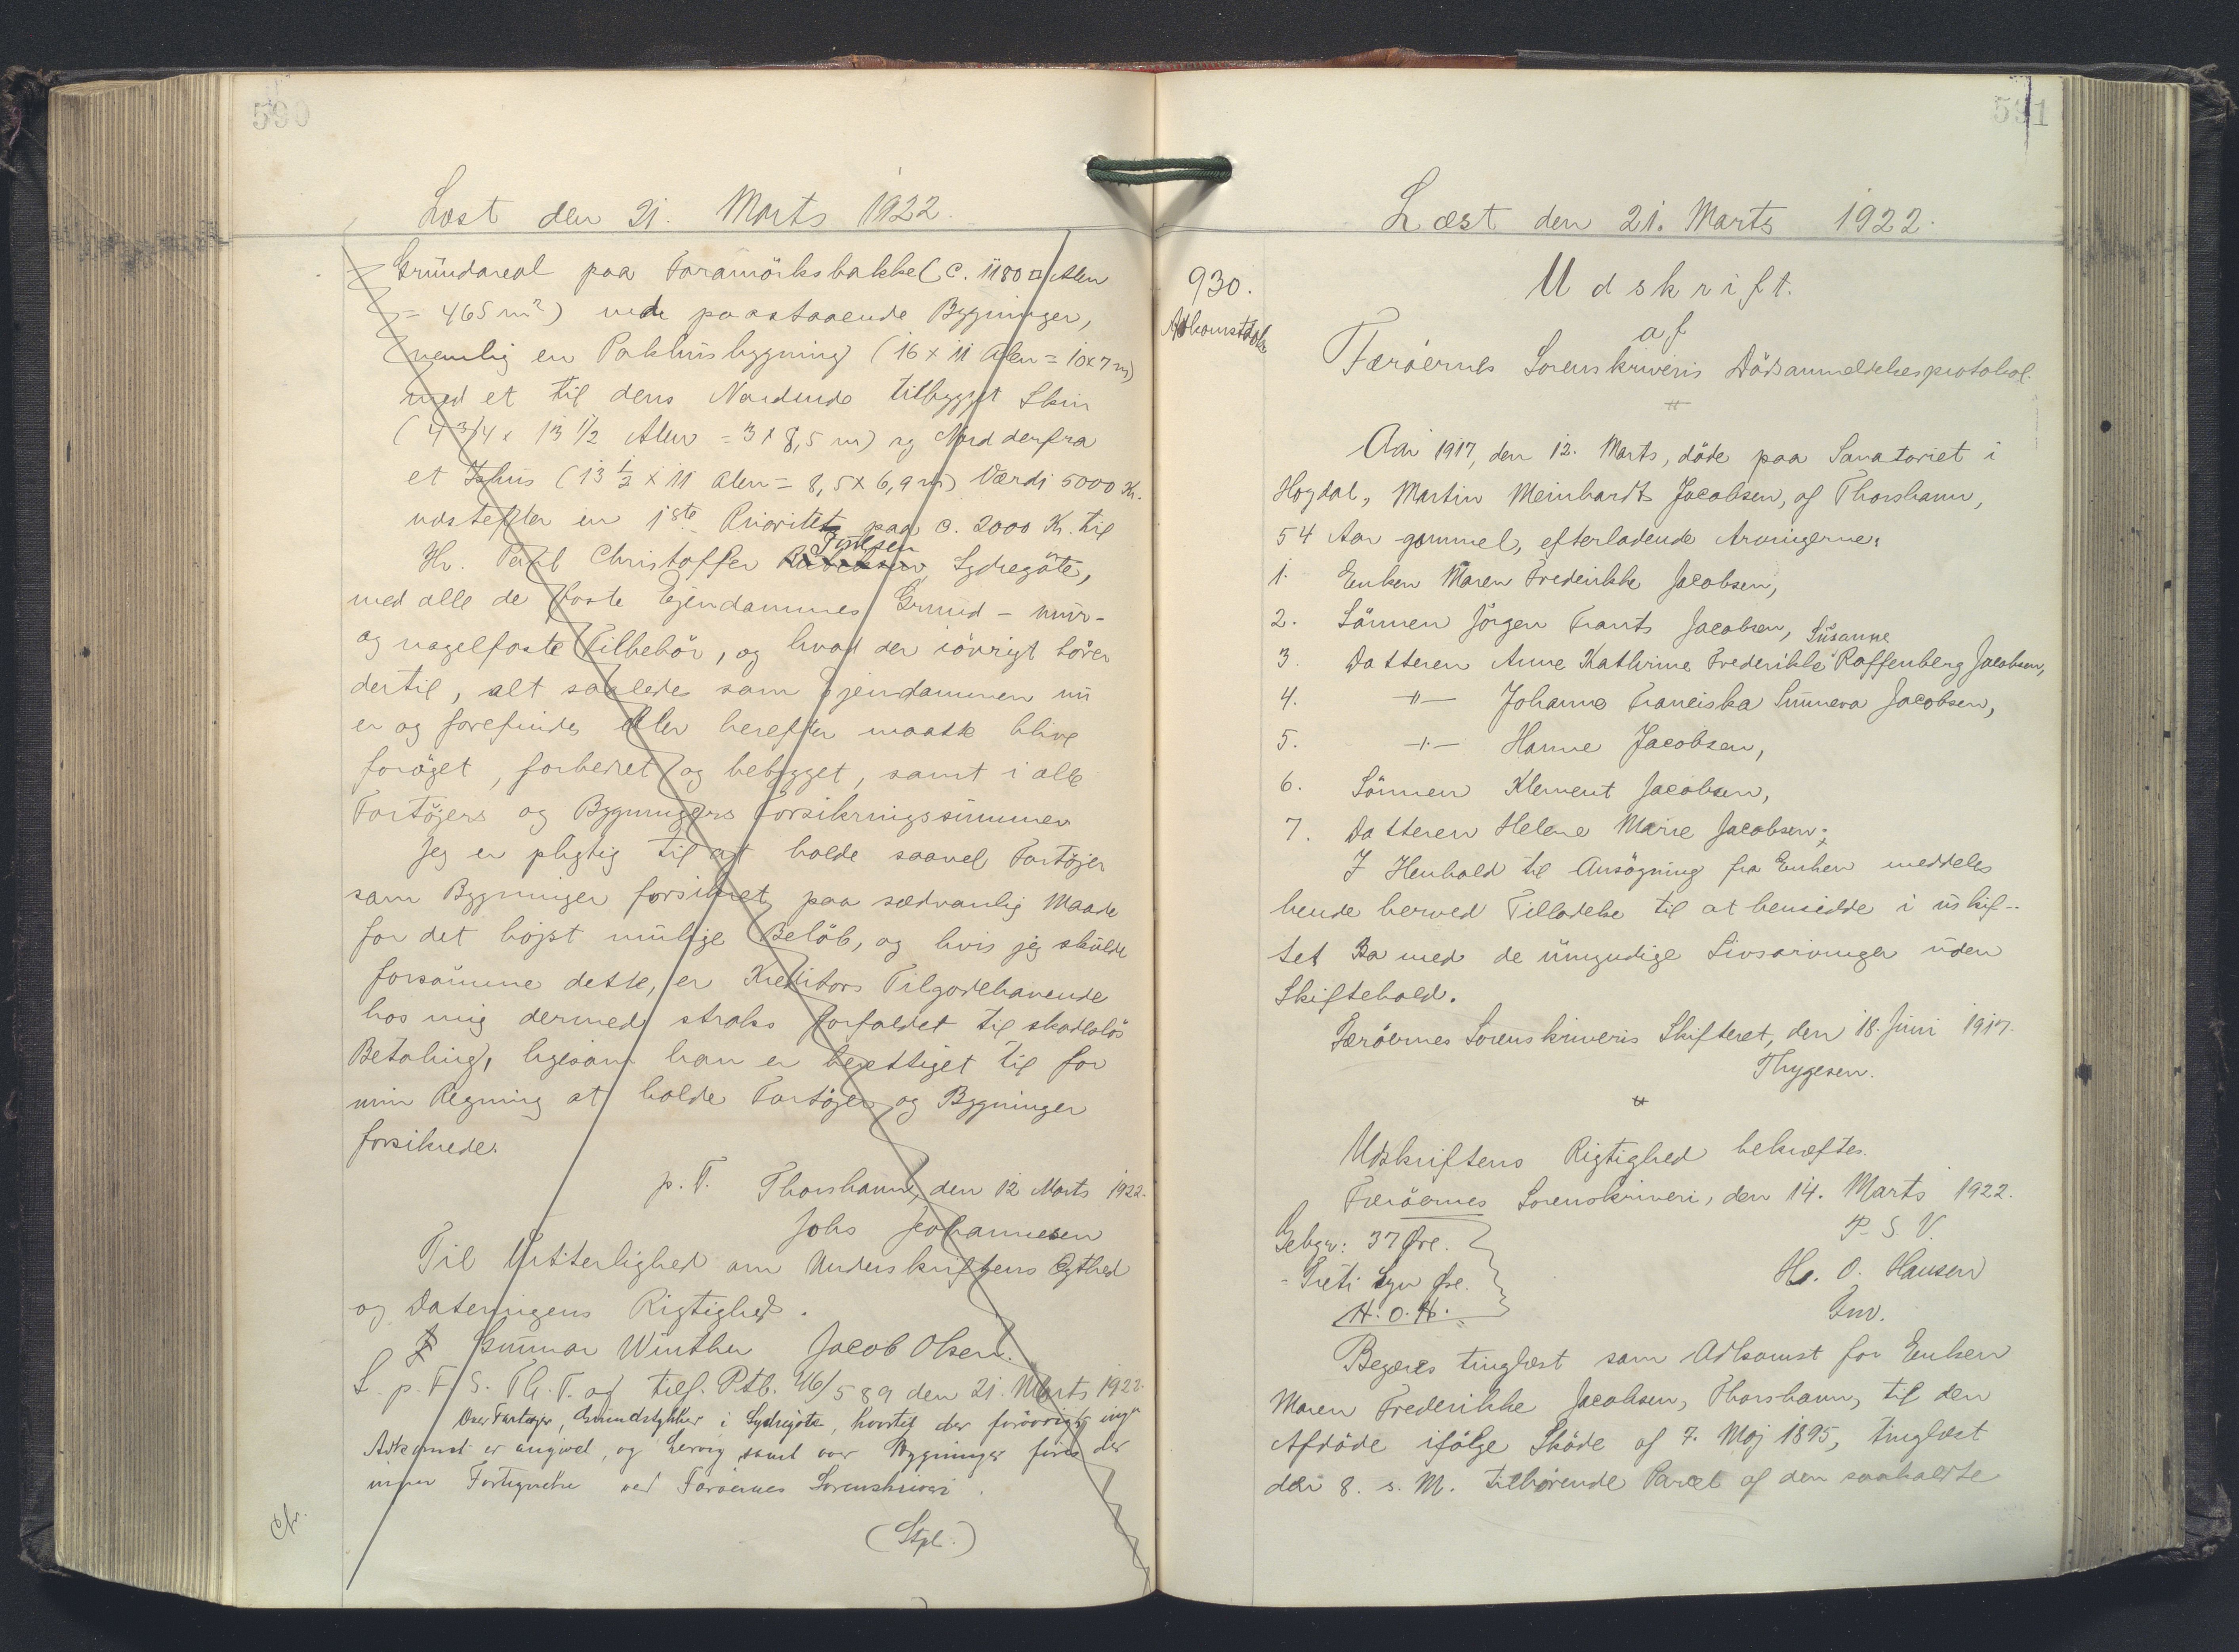 590
Læst den 21. Marts 1922.
Grundareal paa Taramörksbakke (c. 1180 □ Alen
= 465 m²) med paastaaende Bygninger,
nemlig en Pakhusbygning (16 x 11 Alen = 10x7 m)
med et til dens Nordende tilbygget Skur
(4 3/4 x 13 1/2 Alen = 3 x 8,5 m) og Nord derfra
et Ishus (13 1/2 x 11 Alen = 8,5 x 6,9 m) Værdi 5000 Kr.
næstefter en 1ste Prioritet paa c. 2000 Kr. til
Hr. Poul Christoffer Joensen, Sydregöte,
med alle de faste Ejendommes Grund- mur-
og nagelfaste Tilbehör, og hvad der iövrigt hörer
dertil, alt saaledes som Ejendommen nu
er og forefindes eller herefter maatte blive
foröget, forbedret og bebygget, samt i alle
Fartöjers og Bygningers Forsikringssummer
Jeg er pligtig til at holde saavel Fartöjer
som Bygninger forsikret paa sædvanlig Maade
for det höjst mulige Belöb, og hvis jeg skulde
forsömme dette, er Kreditors Tilgodehavende
hos mig dermed straks forfaldet til skadeslös
Betaling, ligesom han er berettiget til for
min Regning at holde Fartöjer og Bygninger
forsikrede.
p. T. Thorshavn, den 12 Marts 1922.
Johs Johannesen
Til Vitterlighed om Underskriftens Ægthed
og Dateringens Rigtighed.
Gunnar Winther Jacob Olsen.
L. p. F. S. Th. T. og tilf. Ptb. 46/589 den 21. Marts 1922.
Over Fartøjer, Grundstykker i Sydregöte, hvortil der forövrigt ingen
Adkomst er angivet, og Lervig samt over Bygninger føres der
ingen Fortegnelse ved Færøernes Sorenskriveri.
(Stpl.)
Cfr.
591
Læst den 21. Marts 1922.
930.
Adkomstdok
Udskrift.
af
Færöernes Sorenskriveris Dödsanmeldelsesprotokol.
Aar 1917, den 12. Marts, döde paa Sanatoriet i
Hoydal, Martin Meinhardt Jacobsen, af Thorshavn,
54 Aar gammel, efterladende Arvingerne:
1. Enken Maren Frederikke Jacobsen,
2. Sönnen Jörgen Frants Jacobsen,
3. Datteren Anne Kathrine Frederikke Susanne Raffenberg Jacobsen,
4. -"- Johanne Franciska Sunneva Jacobsen,
5. -"- Hanne Jacobsen,
6. Sönnen Klement Jacobsen,
7. Datteren Helene Marie Jacobsen;
I Henhold til Ansögning fra Enken meddeles
hende herved Tilladelse til at hensidde i uskif-
tet Bo med de umyndige Livsarvinger uden
Skiftehold.
Færöernes Sorenskriveris Skifteret, den 18. Juni 1917.
Thygesen.
Udskriftens Rigtighed bekræftes.
Færöernes Sorenskriveri, den 14. Marts 1922.
P. S. V.
H. O. Hansen
Fm.
Gebyr: 37 Øre.
- Treti Syv Øre.
H. O. H.
Begæres tinglæst som Adkomst for Enken
Maren Frederikke Jacobsen, Thorshavn, til den
Afdöde ifölge Sköde af 7. Maj 1895, tinglæst
den 8. s. M. tilhörende Parcel af den saakaldte